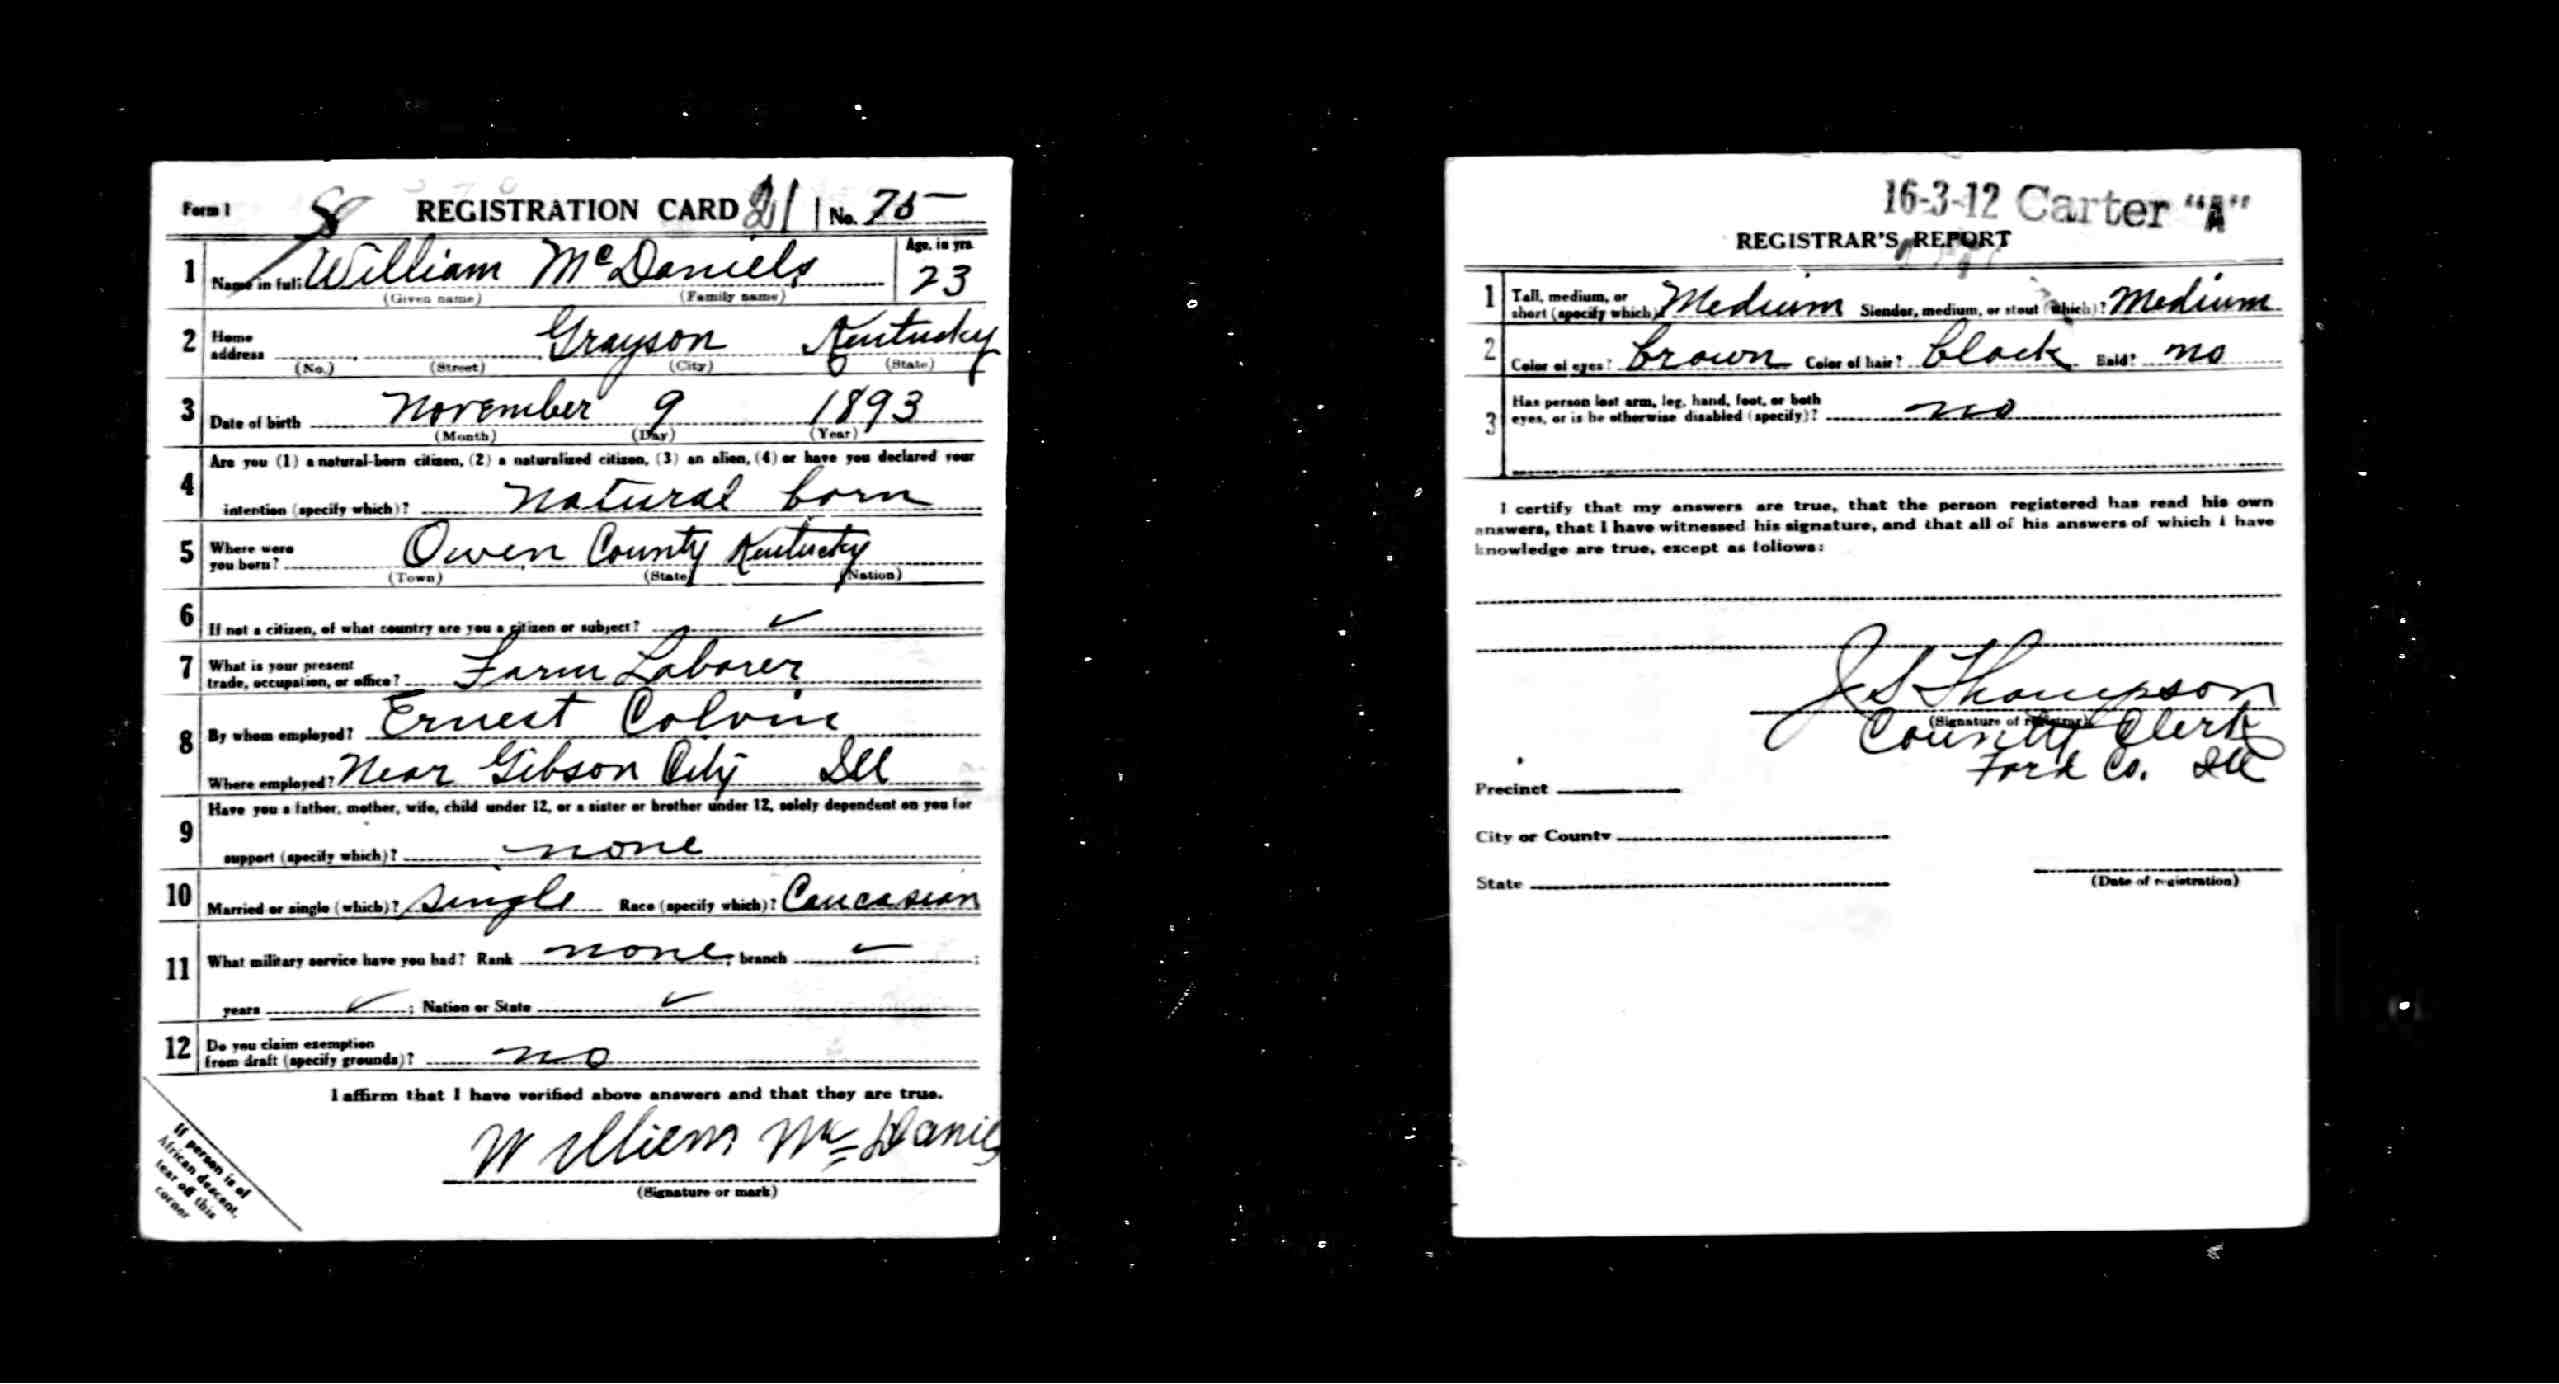 Form 1 REGISTRATION CARD 21 No. 75
1 Name in full William McDaniels Age, in yrs. 23
(Given name) (Family name)
2 Home address Grayson Kentucky
(No.) (Street) (City) (State)
3 Date of birth November 9 1893
(Month) (Day) (Year)
4 Are you (1) a natural-born citizen, (2) a naturalized citizen, (3) an alien, (4) or have you declared your
intention (specify which)? natural born
5 Where were you born? Owen County Kentucky
(Town) (State) (Nation)
6 If not a citizen, of what country are you a citizen or subject? ✓
7 What is your present trade, occupation, or office? Farm Laborer
8 By whom employed? Ernest Colvin
Where employed? Near Gibson City Ill
9 Have you a father, mother, wife, child under 12, or a sister or brother under 12, solely dependent on you for
support (specify which)? none
10 Married or single (which)? Single Race (specify which)? Caucasian
11 What military service have you had? Rank none; branch ✓;
years ✓; Nation or State ✓
12 Do you claim exemption from draft (specify grounds)? no
I affirm that I have verified above answers and that they are true.
William McDaniels
(Signature or mark)
If person is of
African descent,
tear off this
corner
16-3-12 Carter "A"
REGISTRAR'S REPORT
1 Tall, medium, or short (specify which)? Medium Slender, medium, or stout (which)? Medium
2 Color of eyes? brown Color of hair? black Bald? no
3 Has person lost arm, leg, hand, foot, or both
eyes, or is he otherwise disabled (specify)? no
I certify that my answers are true, that the person registered has read his own
answers, that I have witnessed his signature, and that all of his answers of which I have
knowledge are true, except as follows:
J S Thompson
(Signature of registrar)
County Clerk
Ford Co. Ill
Precinct
City or County
State
(Date of registration)